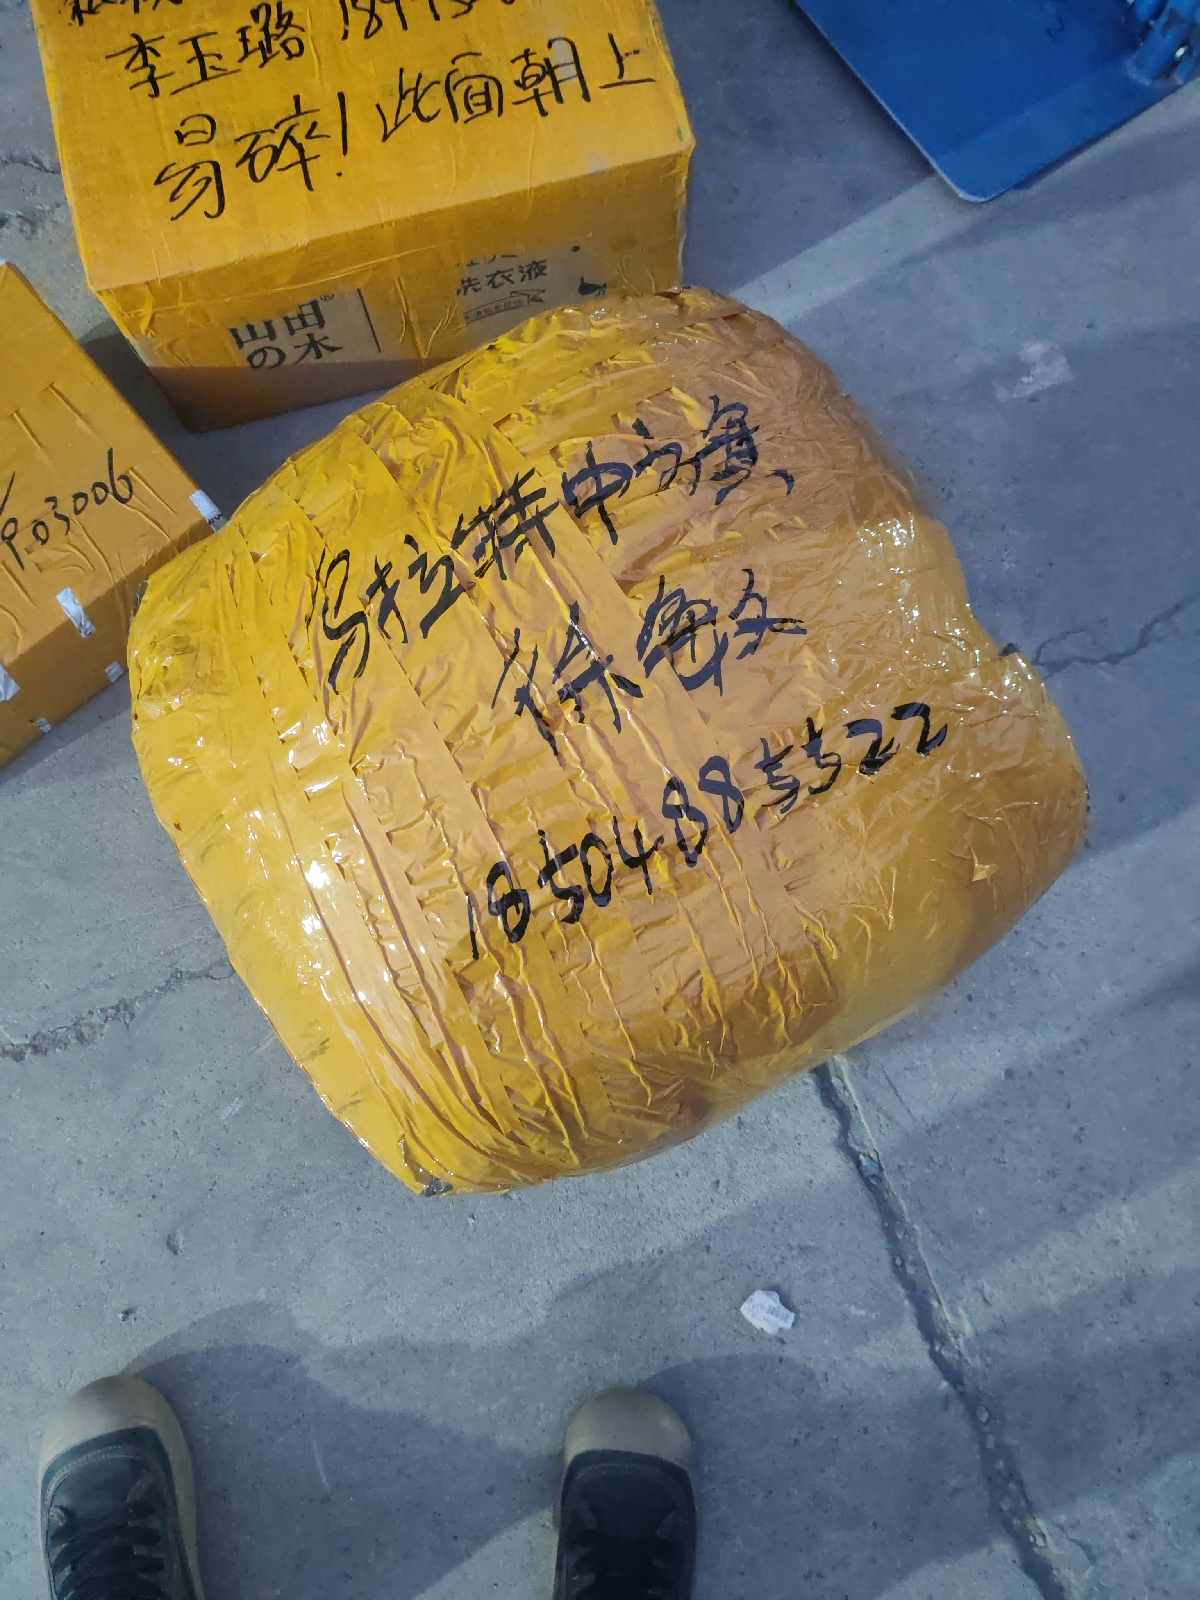 李玉璐
易碎!此面朝上
山田
の木
洗衣液
903006
乌拉特中旗
徐海文
18504885522